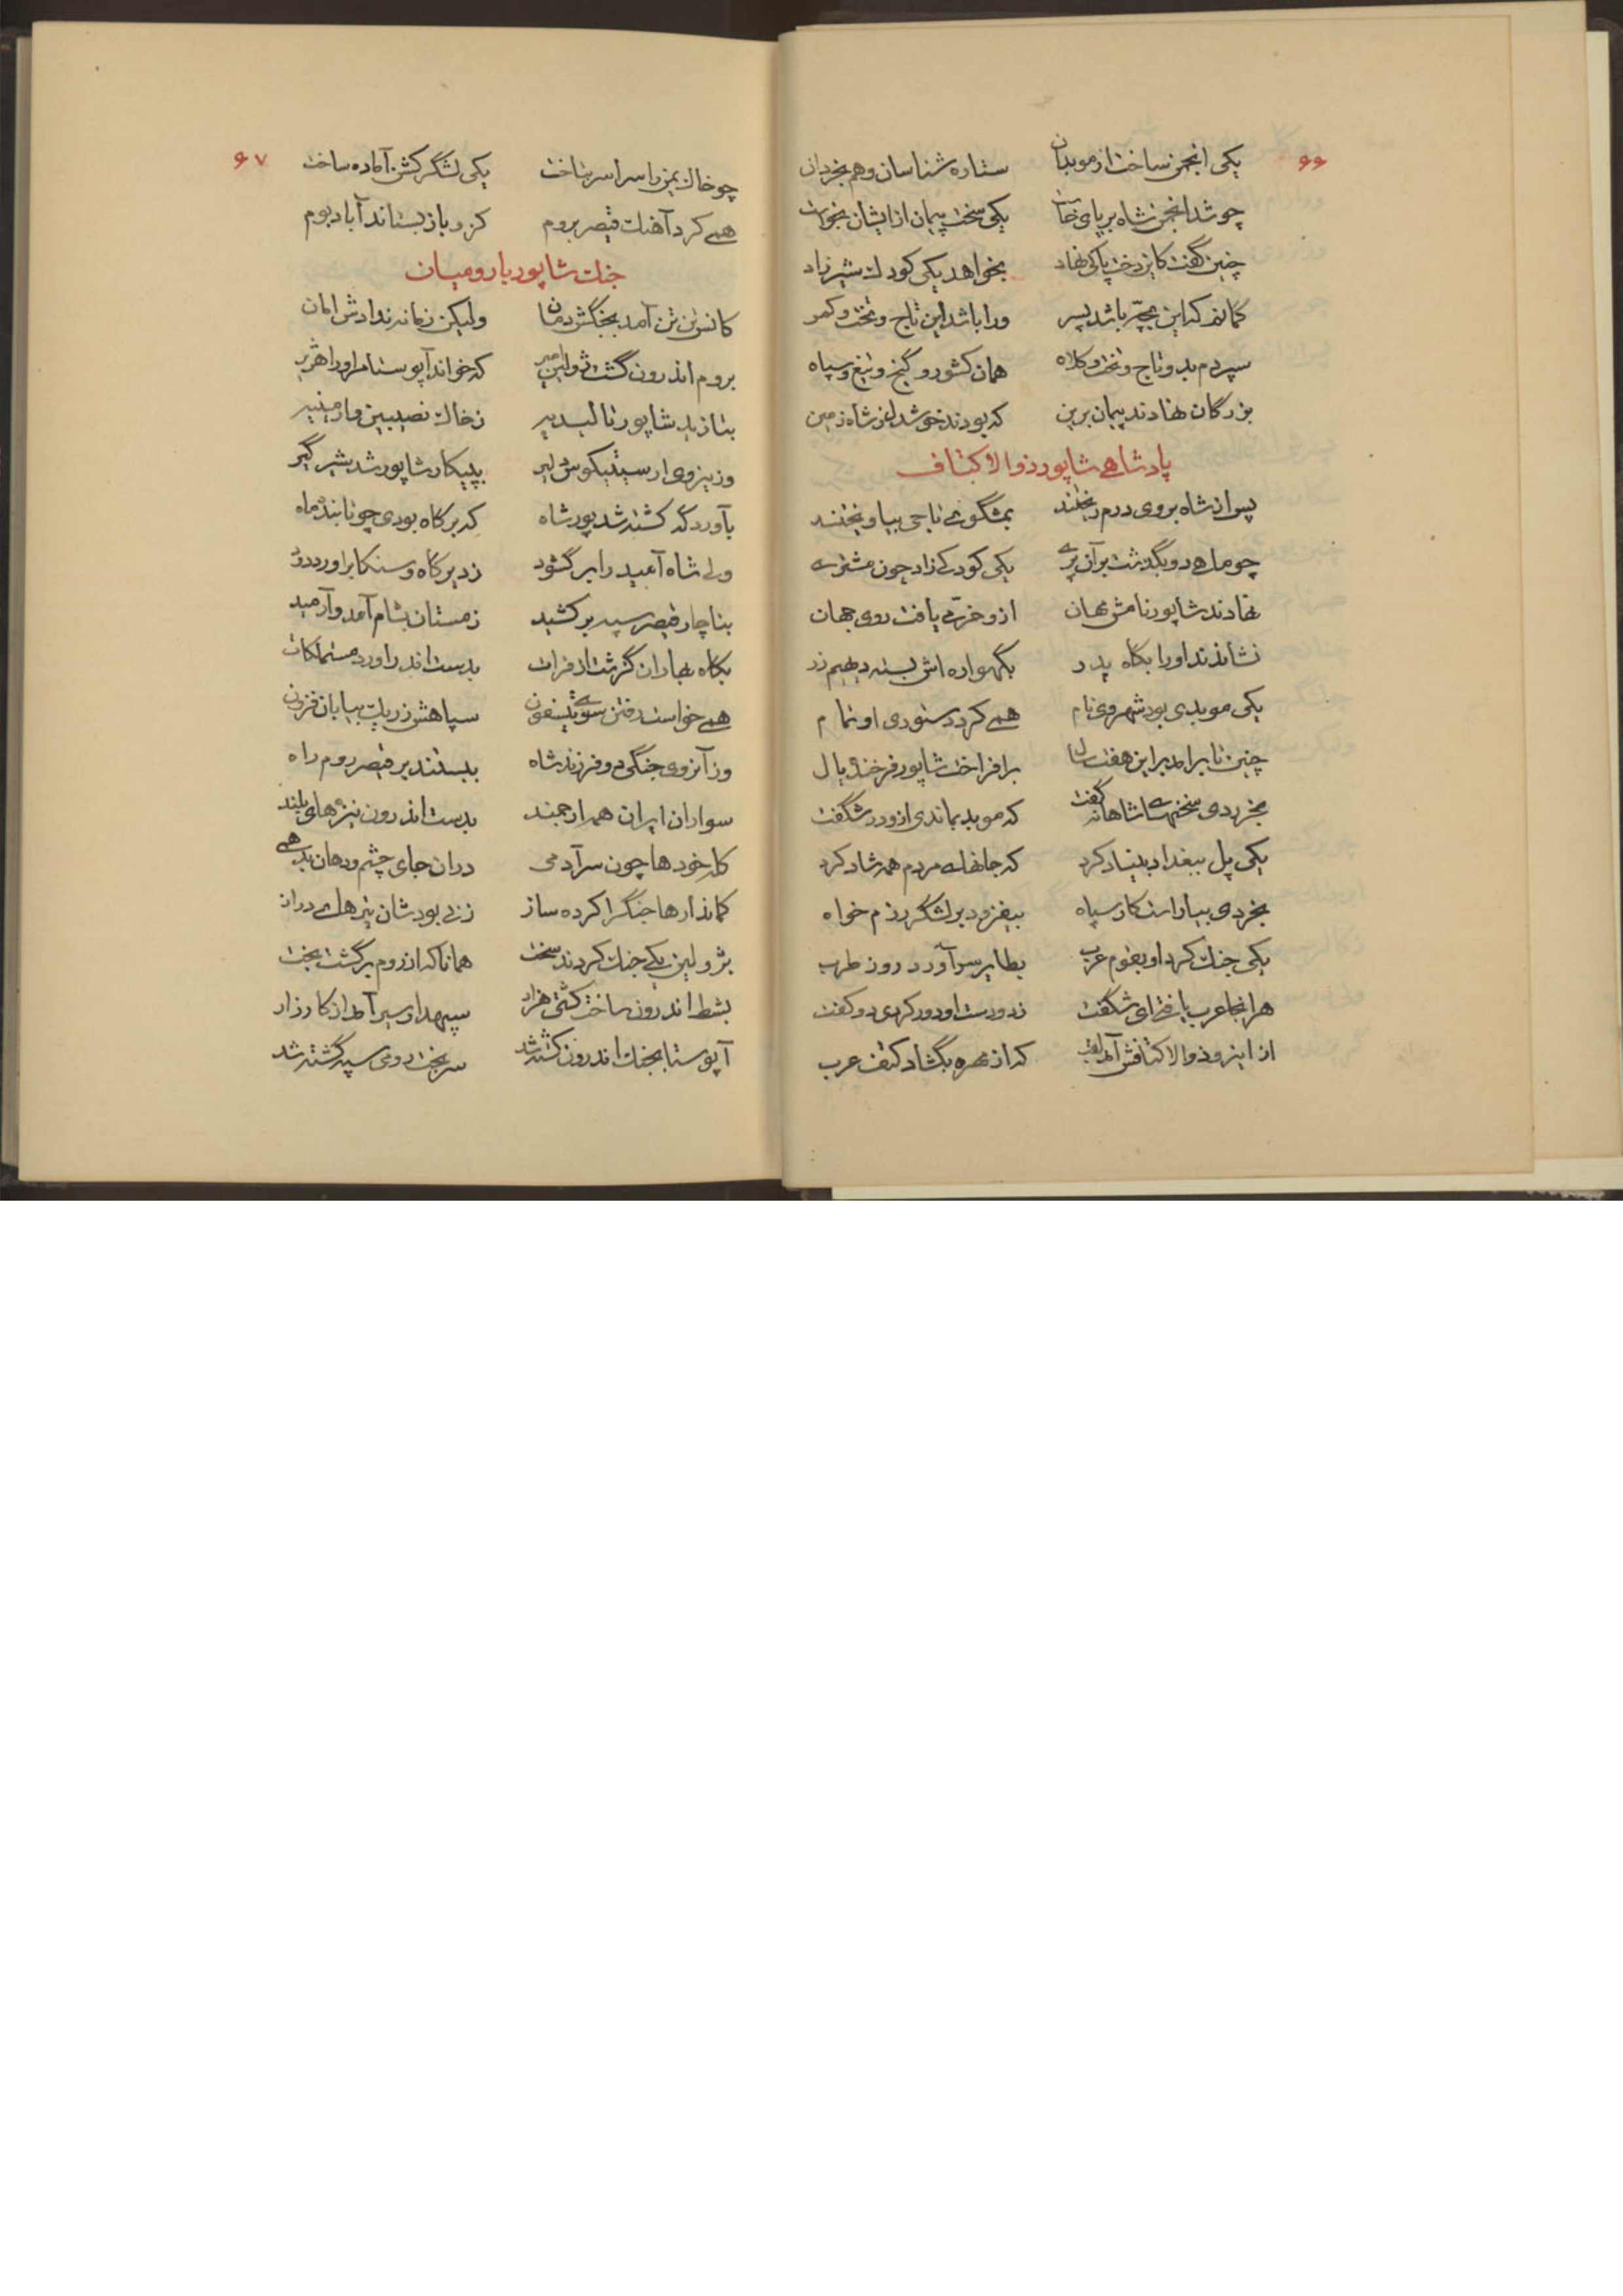 ۶۶
یکی انجمن ساخت از موبدان ستاره شناسان و هم بخردان
چو شد انجمن شاه بر پای خاست یکی سخت پیمان از ایشان بخواست
چنین گفت کاین دخت پاکی نهاد بخواهد یکی کودک شیر زاد
گمانم که این بچه باشد پسر ورا باشد این تاج و تخت و کمر
سپردم بدو تاج و تخت و کلاه همان کشور و گنج و تیغ و سپاه
بزرگان نهادند پیمان برین که بودند خوشدل ز شاه زمین
پادشاهی شاپور ذوالاکتاف
پس از شاه بر وی درم ریختند بمشگوی تاجی بیاویختند
چو ماهی دو بگذشت بر آن پری یکی کودکی زاد چون مشتری
نهادند شاپور نامش مهان ازو خرّمی یافت روی جهان
نشاندند او را بگاه پدر بگهواره اش بسته دیهیم زر
یکی موبدی بود شهروی نام همی کرد دستوری او تمام
چنین تا برآمد براین هفت سال برافراخت شاپور فرخنده یال
بخردی سخنهای شاهانه گفت که موبد بماندی ازو در شگفت
یکی پل ببغداد بنیاد کرد که جانهای مردم همه شاد کرد
بخردی بیاراست کار سپاه بیفزود بر لشگر رزم خواه
یکی جنک کرد او بقوم عرب بطایر سر آورد روز طرب
هر آنجا عرب یافت ای شگفت ز دو دست او دور کردی دو کفت
از اینرو ذوالاکتافش آمد لقب که از مهره بگشاد کتف عرب
۶۷
چو خاک یمن را سراسر بتاخت یکی لشگر گشن آماده ساخت
همی کرد آهنک قیصر بروم کزو باز بستاند آباد بوم
جنک شاپور با رومیان
کانستن تن آمد بجنگش دمان ولیکن زمانه ندادش امان
بروم اندرون گشت ژولین امیر که خواند آپوستا مر او را هژیر
بتازید شاپور نالبدیر ز خاک نصیبین و ارمنیه
وز نیروی ارسیتیکوس دلیر بپیکار شاپور شد شیر گیر
بآوردگه کشته شد پور شاه که بر گاه بودی چو تابنده ماه
ولی شاه آمید را بر گشود
بناچار قیصر سپه بر کشید زمستان بشام آمد و آرمید
بگاه بهاران گذشت از فرات بدست اندر اورد مستملکات
همی خواست رفتن سوی تیسفون سپاهش ز ریگ بیابان فزون
وز آنروی جنگی دو فرزند شاه ببستند بر قیصر روم راه
سواران ایران همه ارجمند بدست اندرون نیزه های بلند
کله خودها چون سر آدمی در آن جای چشم و دهان بد همی
کماندارها جنگ را کرده ساز ز نی بودشان نیزه های دراز
بژولین یکی جنک کردند سخت همانا که از روم برگشت بخت
بشط اندرون ساخت کشتی هزار سپهدار سیر آمد از کارزار
آپوستا بجنک اندرون کشته شد سر بخت رومی سپه گشته شد